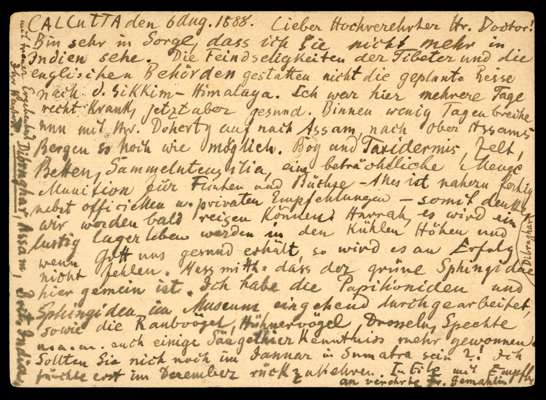 CALCUTTA den 6 Aug. 1888. Lieber Hochverehrter Hr. Doctor!
Bin sehr in Sorge, dass ich Sie nicht mehr in
Indien sehe. Die Feindseligkeiten der Tibeter und die
englischen Behörden gestatten nicht die geplante Reise
nach d. Sikkim-Himalaya. Ich war hier mehrere Tage
recht krank, jetzt aber gesund. Binnen wenig Tagen breche
nun mit Mr. Doherty auf nach Assam, nach Ober Assams
Bergen so hoch wie möglich. Boy und Taxidermis, Zelt,
Betten, Sammelutensilia, eine beträchtliche Menge
Munition für Flinten und Büchse - Alles ist nahezu fertig
nebst officiellen u. privaten Empfehlungen - somit denke
wir werden bald reisen können. Hurrah, es wird ein
lustig Lagerleben werden in den kühlen Höhen und
wenn Gott uns gesund erhält, so wird es an Erfolg
nicht fehlen. dass der grüne Sphingidae
hier gemein ist. Ich habe die Papilioniden und
Sphingiden im Museum eingehend durchgearbeitet,
sowie die Raubvögel, Hühnervögel, Drosseln, Spechte
u.a.m. auch einige Säugethier Kenntniss mehr gewonnen.
Sollten Sie nicht noch im Januar in Sumatra sein?! Ich
fürchte erst im Dezember rückzukehren. In Eile mit Empfhlg
an verehrte Fr. Gemahlin
mit treuer
Ihr
Dibrughar, Assam, Brit. India,
(Dibrughar)